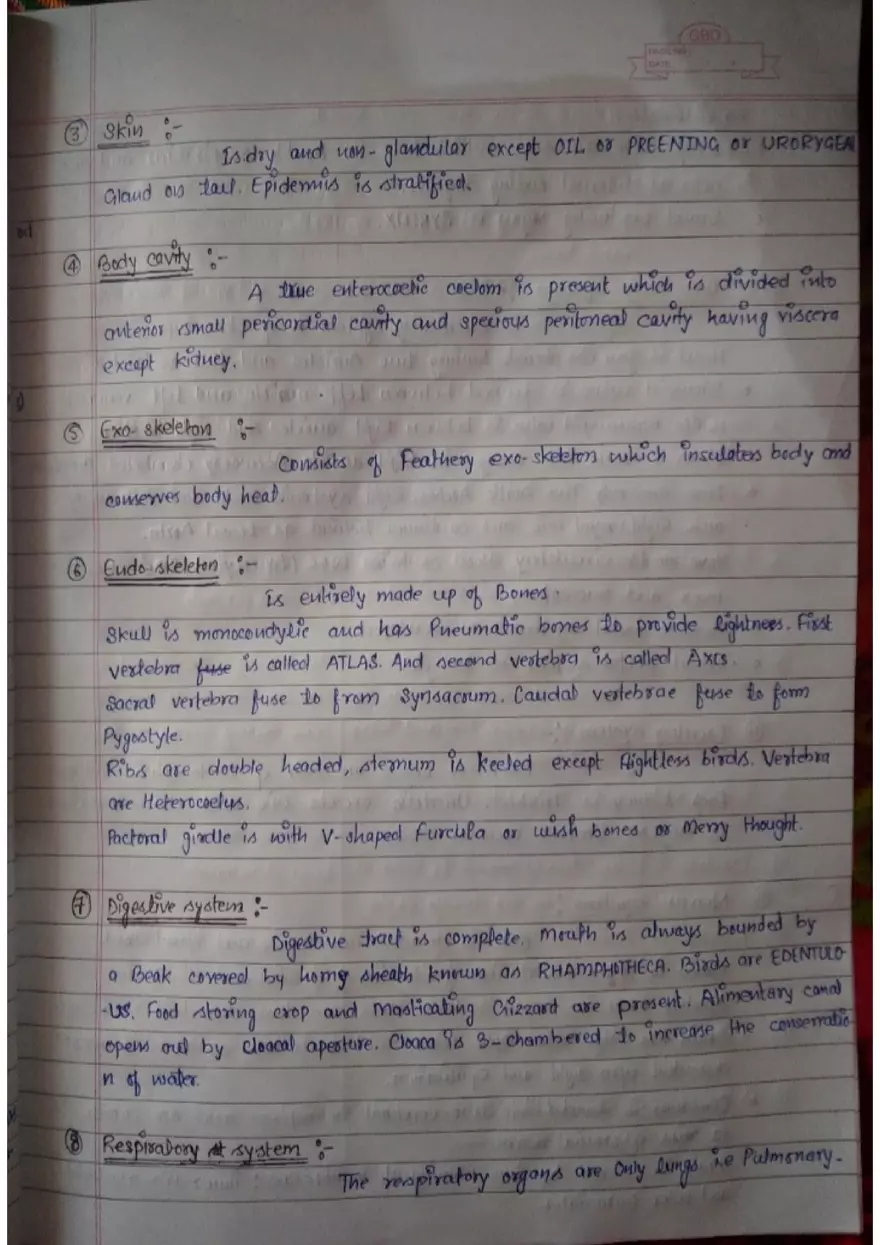 GBD
PAGE NO.
DATE
③ Skin :-
Is dry and non-glandular except OIL or PREENING or URORYGEA
Gland on tail. Epidermis is stratified.
④ Body cavity :-
A true enterocoelic coelom is present which is divided into
anterior small pericardial cavity and specious peritoneal cavity having viscera
except kidney.
⑤ Exo-skeleton :-
Consists of Feathery exo-skeleton which insulates body and
conserves body heat.
⑥ Endo-skeleton :-
Is entirely made up of Bones.
Skull is monocondylic and has Pneumatic bones to provide lightness. First
vertebra fuse is called ATLAS. And second vertebra is called AXIS.
Sacral vertebra fuse to from Synsacrum. Caudal vertebrae fuse to form
Pygostyle.
Ribs are double headed, sternum is keeled except flightless birds. Vertebra
are Heterocoelus.
Pactoral girdle is with V-shaped furcula or wish bones or merry thought.
⑦ Digestive system :-
Digestive tract is complete. Mouth is always bounded by
a Beak covered by horny sheath known as RHAMPHOTHECA. Birds are EDENTULO
-US. Food storing crop and masticating Gizzard are present. Alimentary canal
opens out by cloacal aperture. Cloaca is 3-chambered to increase the conservatio-
n of water.
⑧ Respiratory system :-
The respiratory organs are only lungs i.e Pulmonary.